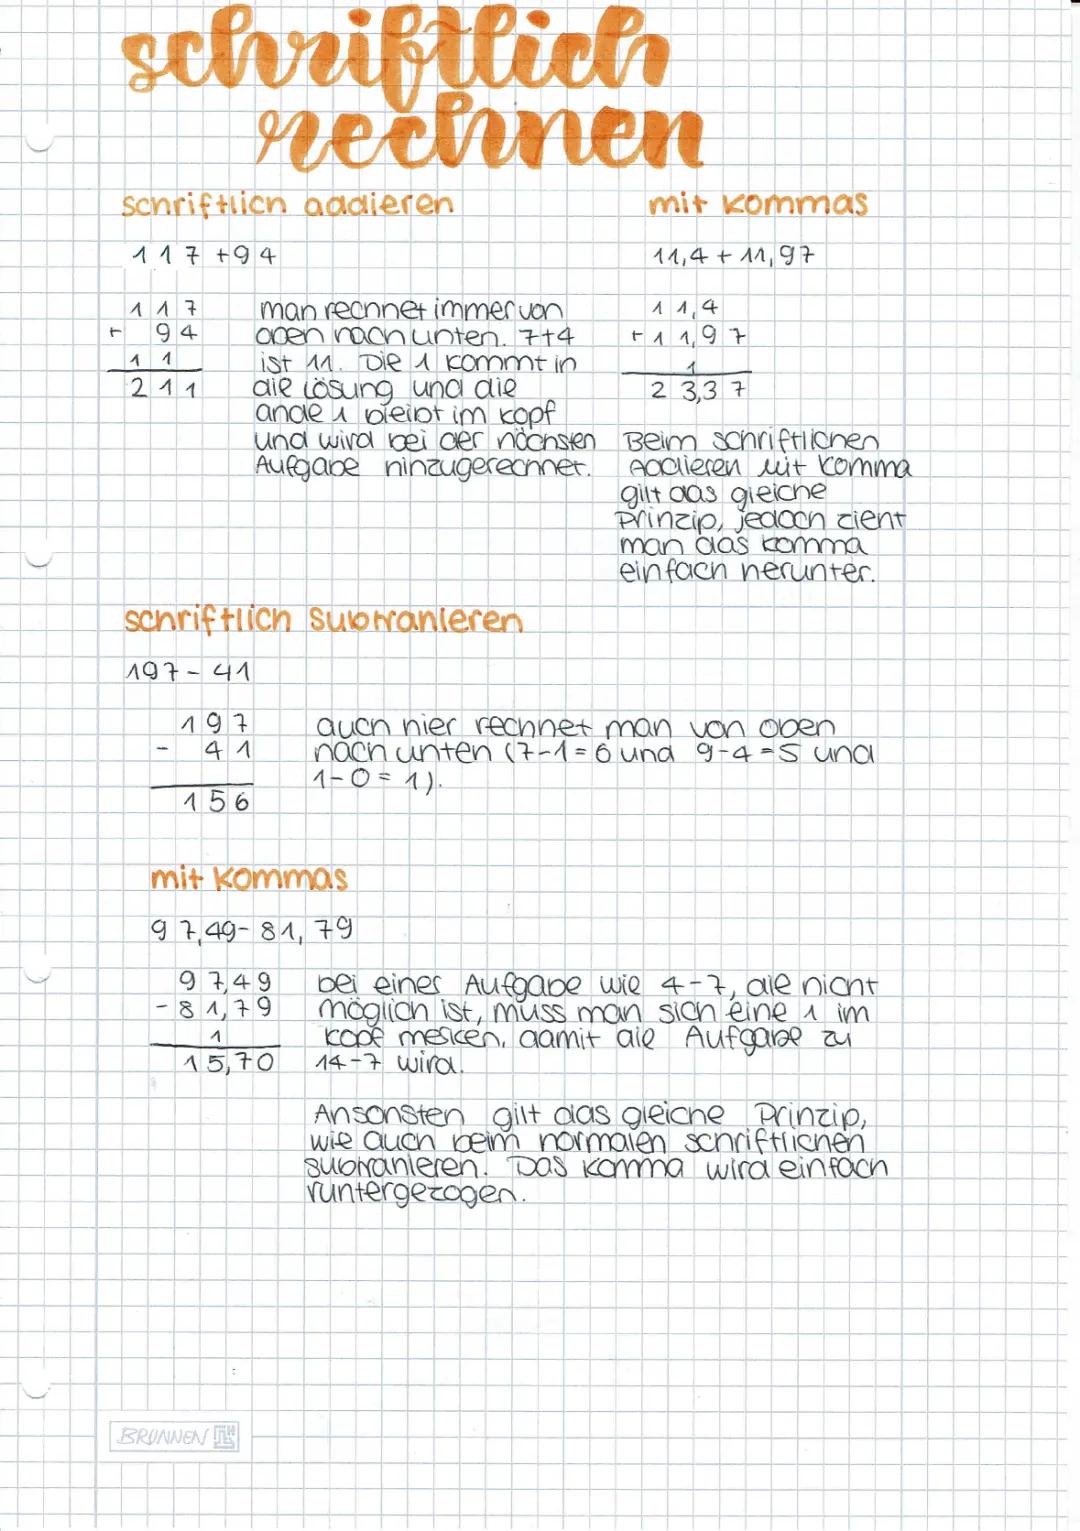 schriftlich
rechnen
schriftlich addieren
117 +94
117
+ 94
11
211
man rechnet immer von
oben nach unten. 7+4
ist 11. Die 1 kommt in
die Lösung und die
ande 1 bleibt im Kopf
und wird bei der nächsten
Aufgabe hinzugerechnet.
mit Kommas
11,4 + 11,97
11,4
+ 11,97
1
23,37
Beim schriftlichen
Addieren mit Komma
gilt das gleiche
Prinzip, jedoch zieht
man das Komma
einfach herunter.
schriftlich subtrahieren
197 - 41
197
- 41
156
auch hier rechnet man von oben
nach unten (7-1=6 und 9-4=5 und
1-0=1).
mit Kommas
97,49- 81,79
97,49
- 81,79
1
15,70
bei einer Aufgabe wie 4-7, die nicht
möglich ist, muss man sich eine 1 im
Kopf merken, damit die Aufgabe zu
14-7 wird.
Ansonsten gilt das gleiche Prinzip,
wie auch beim normalen schriftlichen
subtrahieren. Das Komma wird einfach
runtergezogen.
BRUNNEN